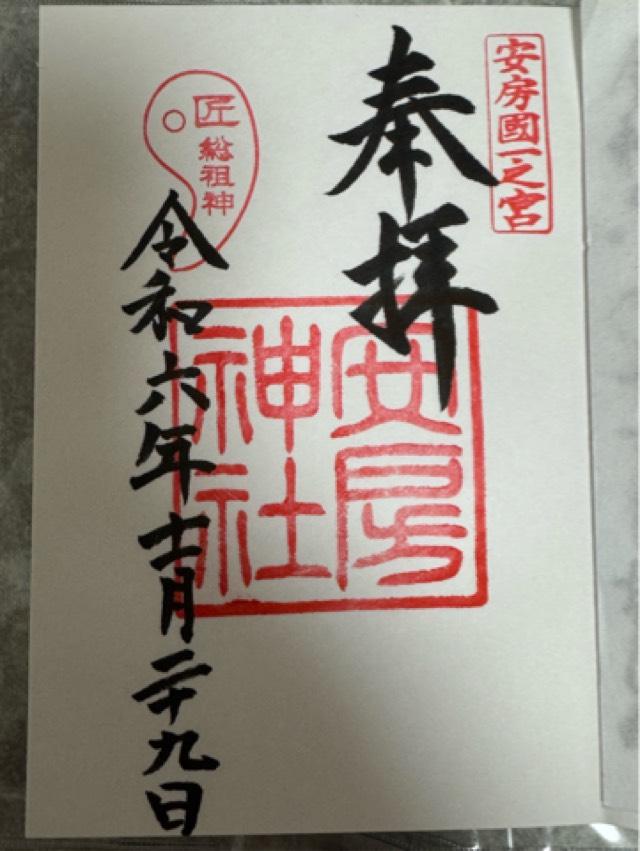 安房國一之宮
奉拝
安房
神社
匠
総祖神
令和六年十一月二十九日